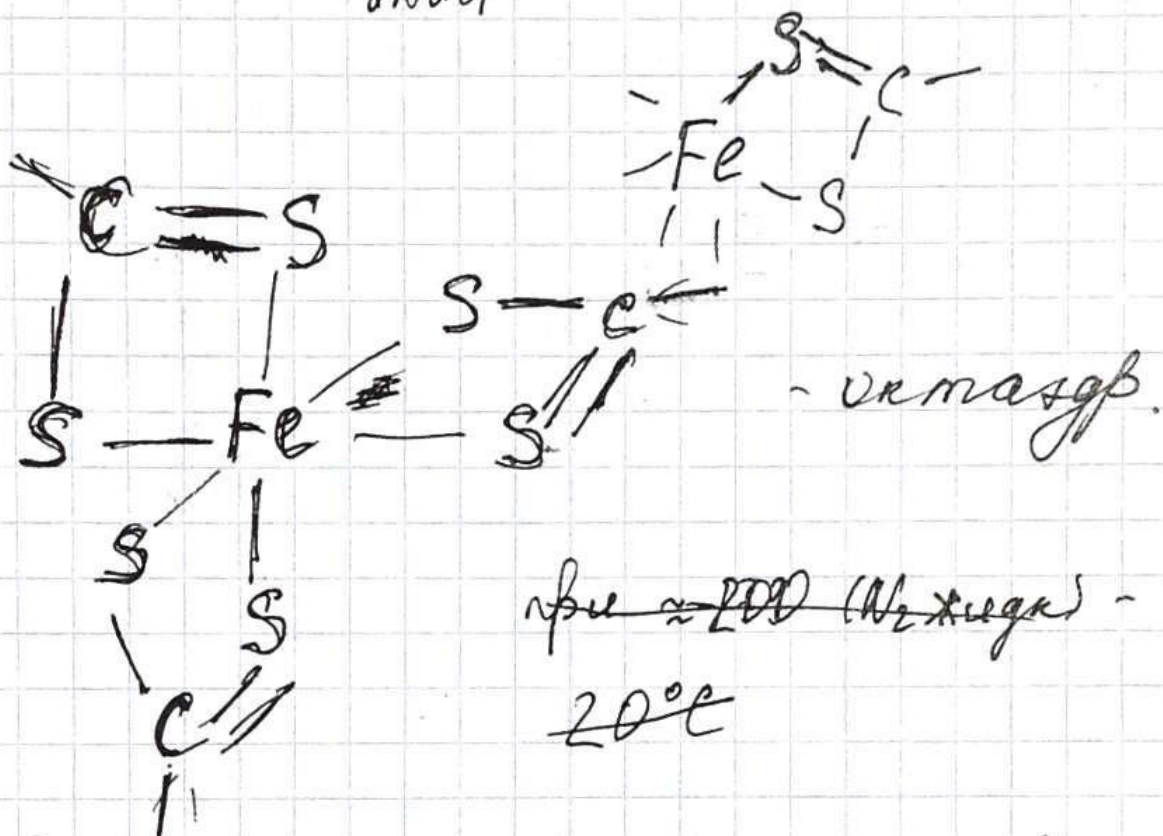 S
C
Fe
S
C = S
S — C
S — Fe — S
- октаэдр.
S
S
при ≈ -200 (N₂ жидк) -
20°C
C